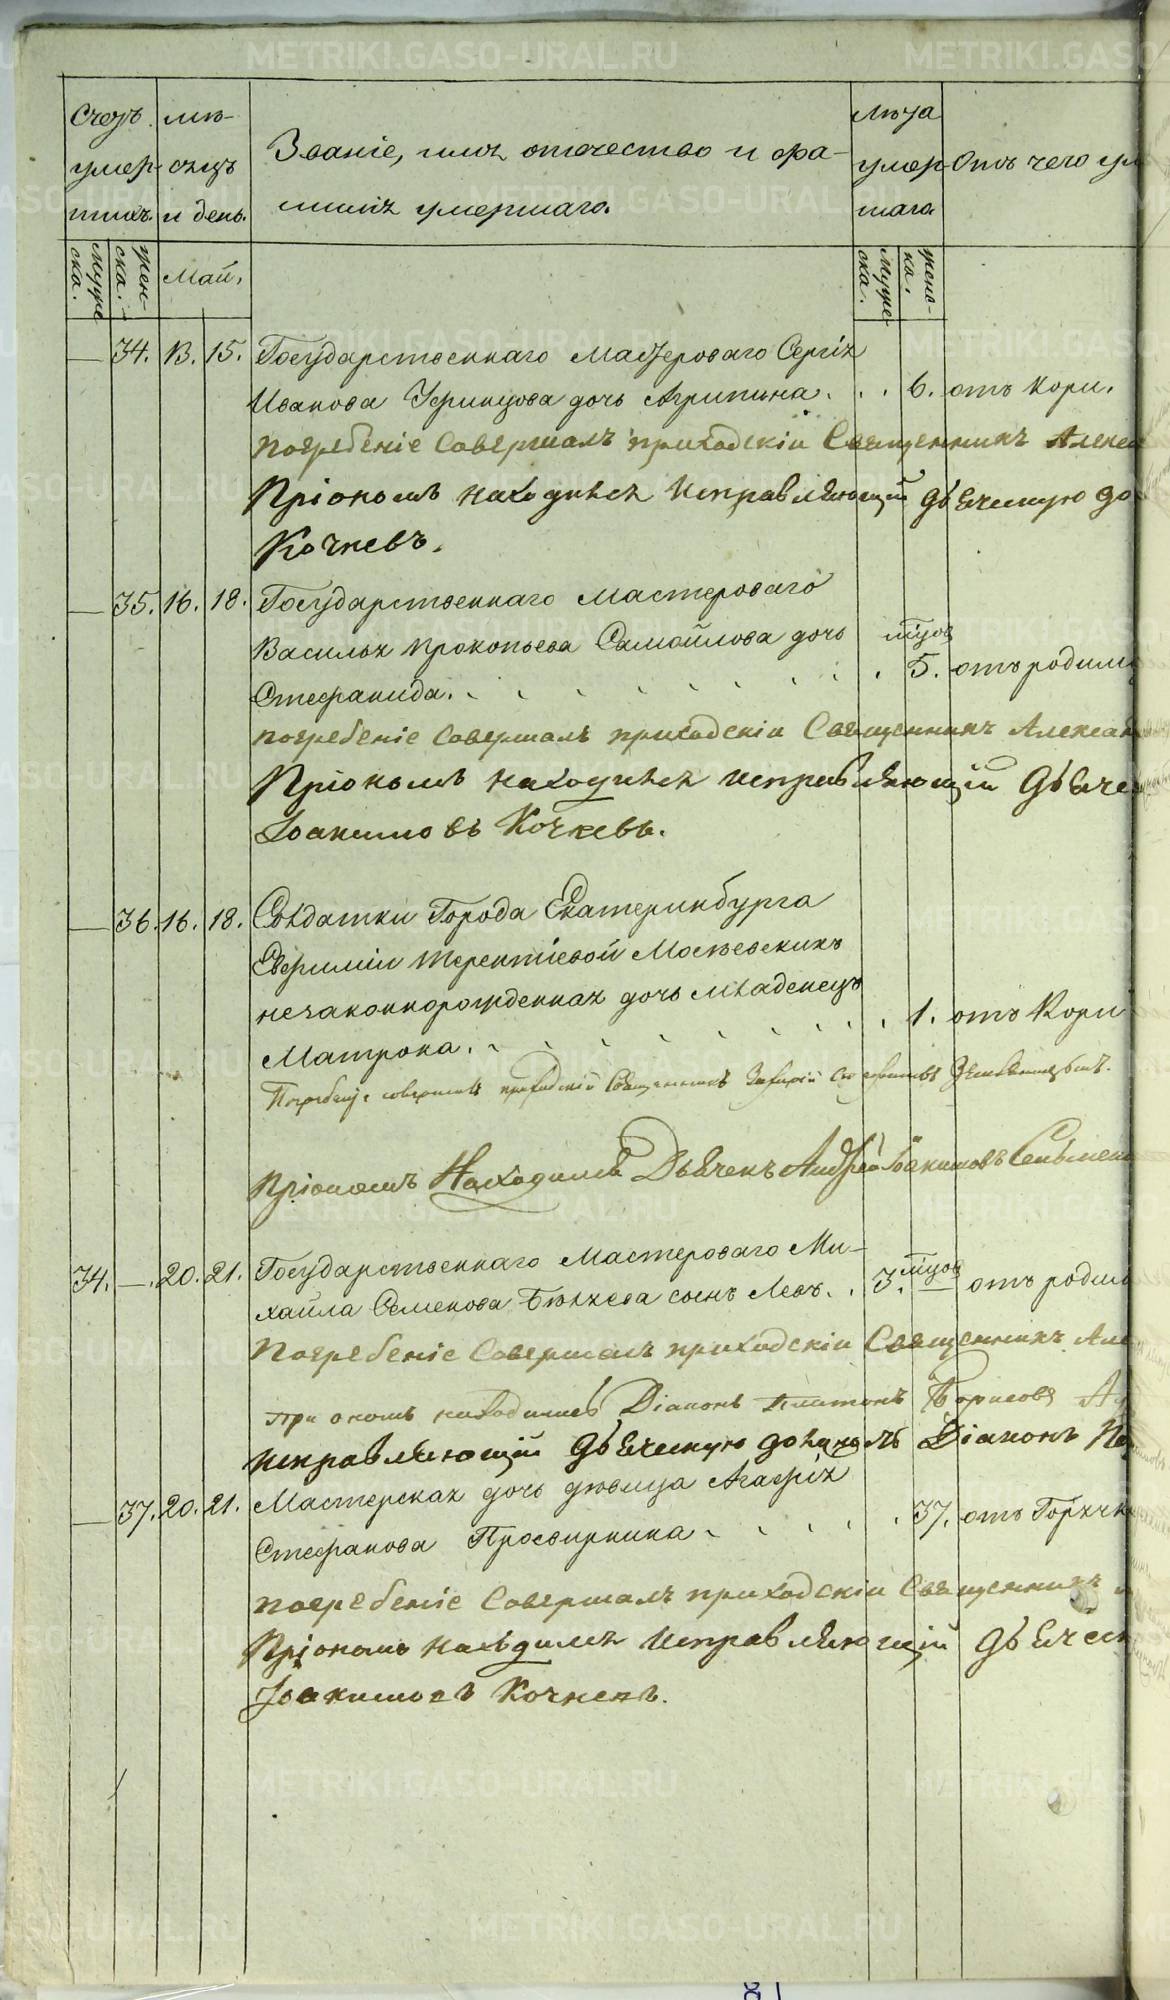 METRIKI.GASO-URAL.RU
Счетъ умер- шихъ.
мѣ- сяцъ и день.
Званіе, имя, отечество и фа- милія умершаго.
лѣта умер- шаго
Отъ чего
муже ска.
жен- ска.
Май.
муже ска.
женс- ка.
— 34. 13. 15. Государственнаго Мастероваго Сергія
Иванова дочь Агрипина. 6. отъ кори.
погребеніе Совершалъ приходскіи Священникъ
Пріономъ находился исправляющій дьяческую
Кочневъ.
— 35. 16. 18. Государственнаго мастероваго
Василья Прокопьева Самойлова дочь мцов
Стефанида. 5. отъ
погребеніе Совершалъ приходскіи Священникъ
Пріономъ находился исправляющій
Іоакимовъ Кочневъ.
— 36. 16. 18. Солдатки Города Екатеринбурга
Евфиміи Терентіевой
незаконнорожденная дочь младенецъ
Матрона. 1. отъ Кори
Погребеніе совершалъ приходскій Священникъ
Пріономъ Находился Дьячекъ Андрей Іоакимовъ
34. — 20. 21. Государственнаго Мастероваго Ми-
хайла Семенова сынъ Левъ. 3. мцов отъ
Погребеніе Совершалъ приходскіи Священникъ
при ономъ находились Діаконъ Платонъ Борисовъ
исправляющій дьяческую должность Діаконъ
— 37. 20. 21. Мастерская дочь дѣвица Агафія
Стефанова Просвирнина 37. отъ
погребеніе Совершалъ приходскіи Священникъ
Пріономъ находился исправляющій
Іоакимовъ Кочневъ.